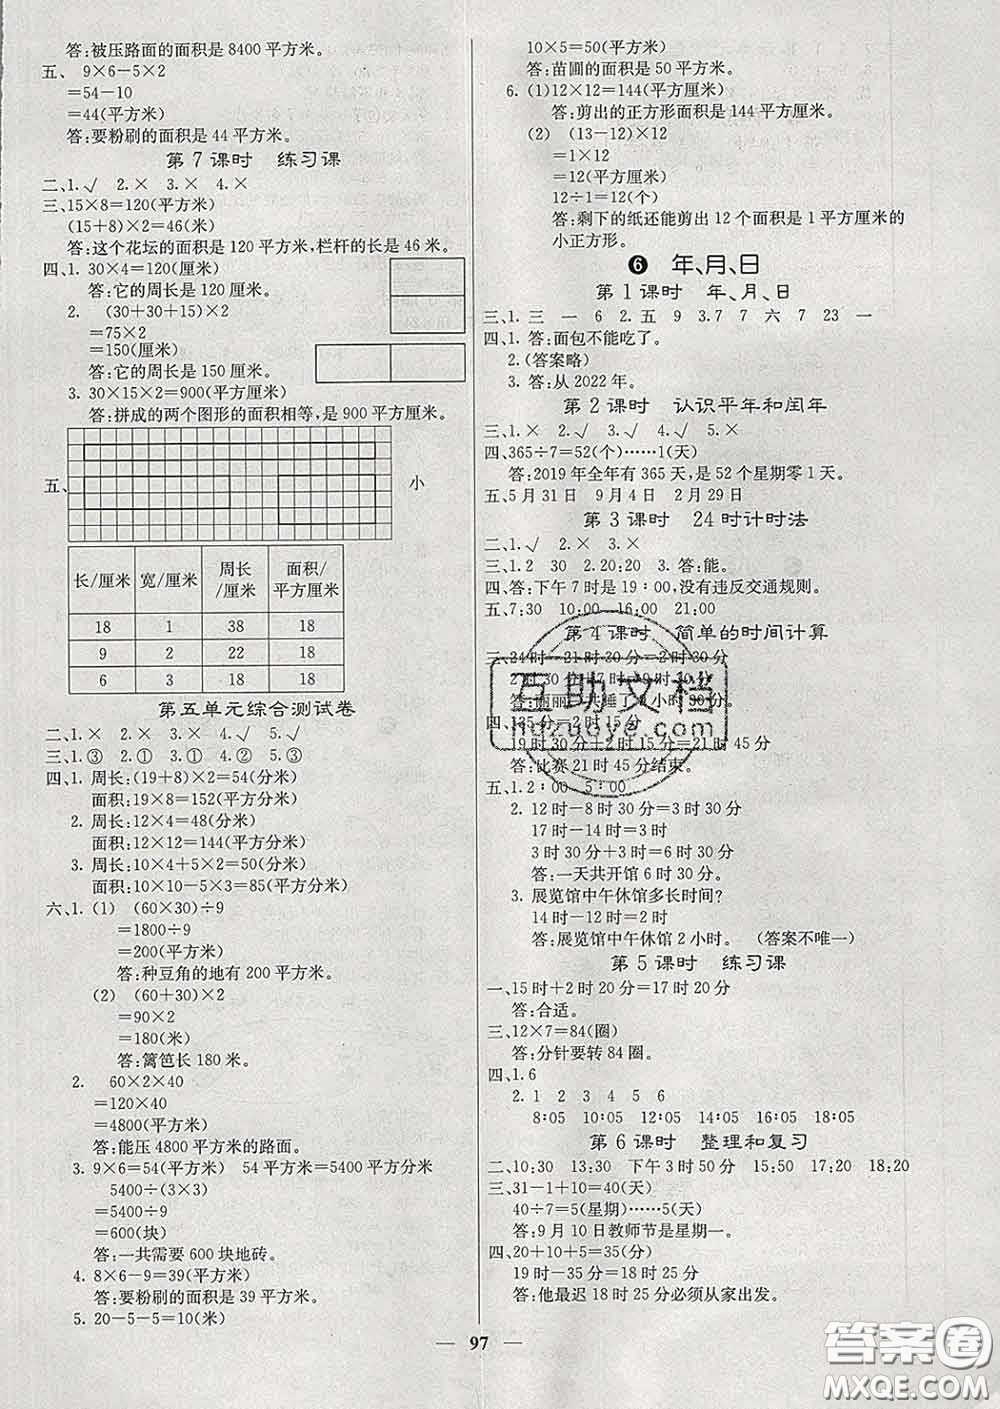 答:被压路面的面积是 8400 平方米。
五、 9×6-5×2
=54-10
=44(平方米)
答:要粉刷的面积是 44 平方米。
第 7 课时 练习课
二、1.√ 2.× 3.× 4.×
三、15×8=120(平方米)
(15+8)×2=46(米)
答:这个花坛的面积是 120 平方米,栏杆的长是 46 米。
四、1. 30×4=120(厘米)
答:它的周长是 120 厘米。
2. (30+30+15)×2
=75×2
=150(厘米)
答:它的周长是 150 厘米。
3. 30×15×2=900(平方厘米)
答:拼成的两个图形的面积相等,是 900 平方厘米。
五、 小
长/厘米 宽/厘米 周长/厘米 面积/平方厘米
18 1 38 18
9 2 22 18
6 3 18 18
第五单元综合测试卷
二、1.× 2.× 3.× 4.√ 5.√
三、1.③ 2.① 3.② 4.① 5.③
四、1. 周长:(19+8)×2=54(分米)
面积:19×8=152(平方分米)
2. 周长:12×4=48(分米)
面积:12×12=144(平方分米)
3. 周长:10×4+5×2=50(分米)
面积:10×10-5×3=85(平方分米)
六、1. (1) (60×30)÷9
=1800÷9
=200(平方米)
答:种豆角的地有 200 平方米。
(2) (60+30)×2
=90×2
=180(米)
答:篱笆长 180 米。
2. 60×2×40
=120×40
=4800(平方米)
答:能压 4800 平方米的路面。
3. 9×6=54(平方米) 54 平方米=5400 平方分米
5400÷(3×3)
=5400÷9
=600(块)
答:一共需要 600 块地砖。
4. 8×6-9=39(平方米)
答:要粉刷的面积是 39 平方米。
5. 20-5-5=10(米)
10×5=50(平方米)
答:苗圃的面积是 50 平方米。
6. (1)12×12=144(平方厘米)
答:剪出的正方形面积是 144 平方厘米。
(2) (13-12)×12
=1×12
=12(平方厘米)
12÷1=12(个)
答:剩下的纸还能剪出 12 个面积是 1 平方厘米的
小正方形。
6 年、月、日
第 1 课时 年、月、日
三、1. 三 一 6 2. 五 9 3.7 7 六 7 23 一
四、1. 答:面包不能吃了。
2.(答案略)
3. 答:从 2022 年。
第 2 课时 认识平年和闰年
三、1.× 2.√ 3.√ 4.√ 5.×
四、365÷7=52(个)……1(天)
答:2019 年全年有 365 天,是 52 个星期零 1 天。
五、5 月 31 日 9 月 4 日 2 月 29 日
第 3 课时 24 时计时法
二、1.√ 2.× 3.×
三、1.2 20 2.20:20 3. 答:能。
四、答:下午 7 时是 19:00,没有违反交通规则。
五、7:30 10:00 16:00 21:00
第 4 课时 简单的时间计算
三、24 时-21 时 30 分=2 时 30 分
四、135 分=2 时 15 分
19 时 30 分+2 时 15 分=21 时 45 分
答:比赛 21 时 45 分结束。
五、1.2:00 5:00
2. 12 时-8 时 30 分=3 时 30 分
17 时-14 时=3 时
3 时 30 分+3 时=6 时 30 分
答:一天共开馆 6 时 30 分。
3. 展览馆中午休馆多长时间?
14 时-12 时=2 时
答:展览馆中午休馆 2 小时。 (答案不唯一)
第 5 课时 练习课
一、15 时+2 时 20 分=17 时 20 分
答:合适。
三、12×7=84(圈)
答:分针要转 84 圈。
四、1.6
2. 1 2 3 4 5 6
8:05 10:05 12:05 14:05 16:05 18:05
第 6 课时 整理和复习
二、10:30 13:30 下午 3 时 50 分 15:50 17:20 18:20
三、31-1+10=40(天)
40÷7=5(星期)……5(天)
答:9 月 10 日教师节是星期一。
四、20+10+5=35(分)
19 时-35 分=18 时 25 分
答:他最迟 18 时 25 分必须从家出发。
97
互助文档
huzuoye.com
答案圈
MXQE.COM